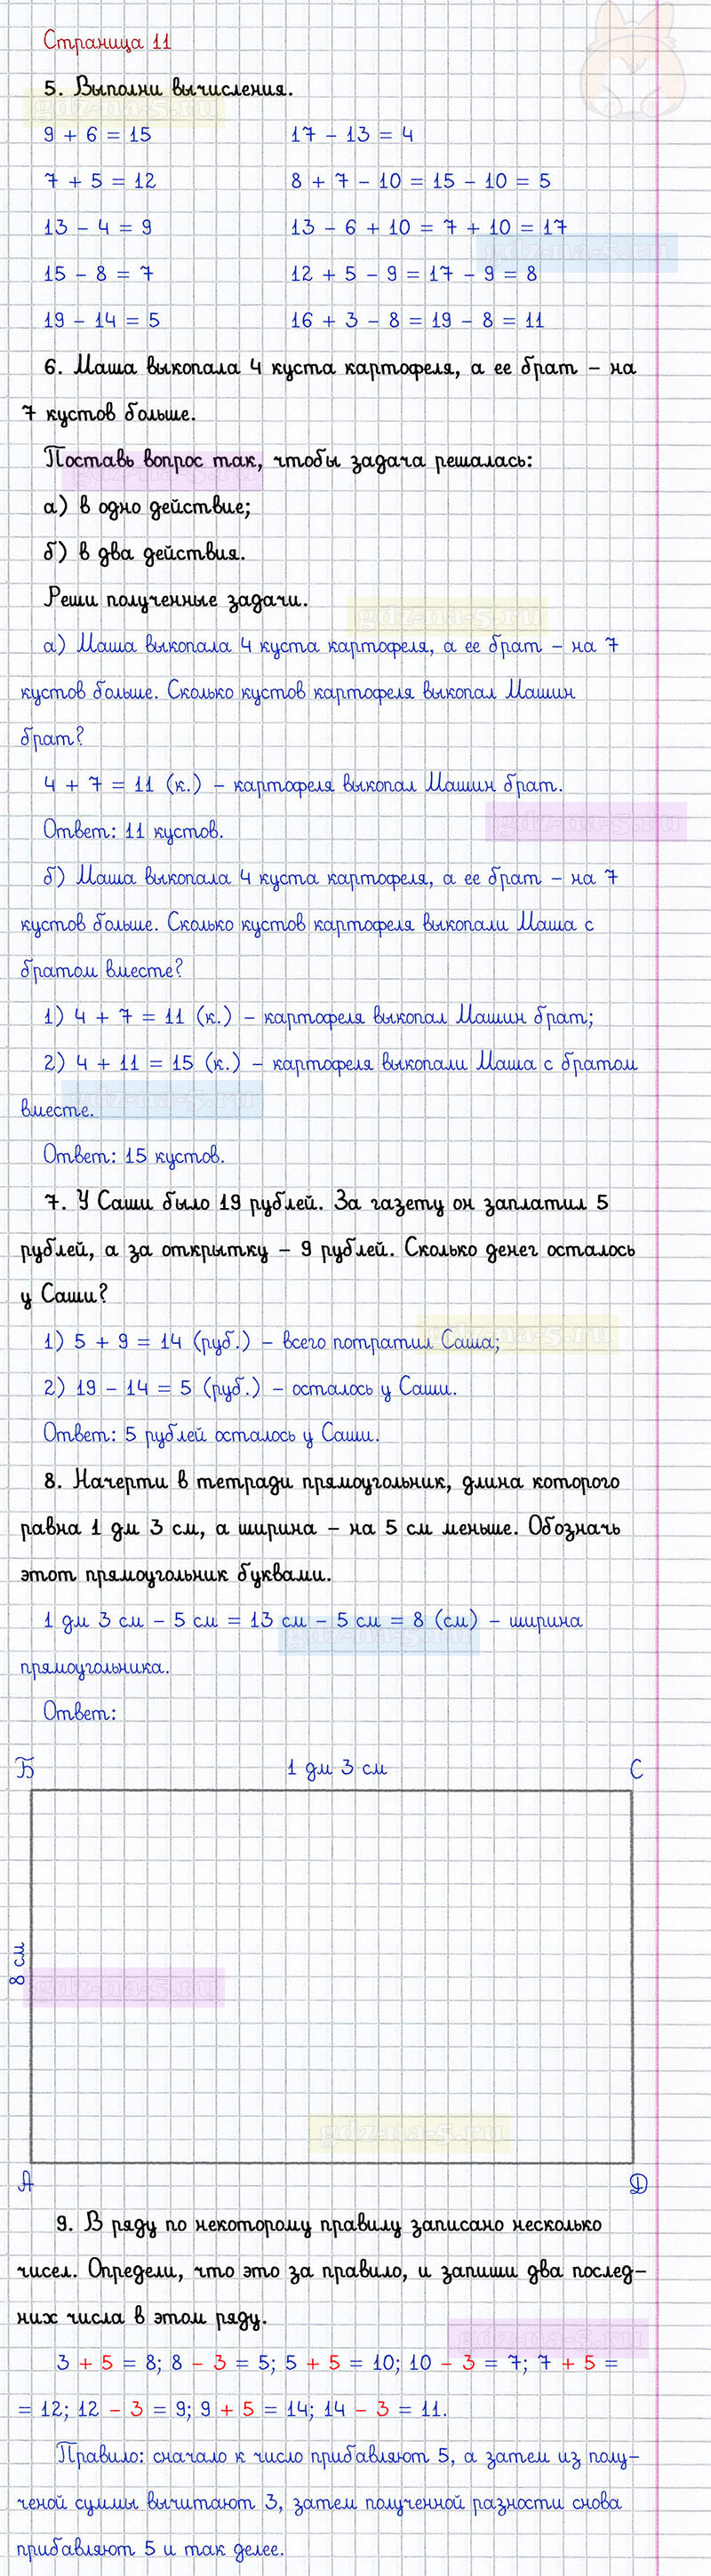 Страница 11
5. Выполни вычисления.
gdz-na-5.ru
9 + 6 = 15 17 - 13 = 4
7 + 5 = 12 8 + 7 - 10 = 15 - 10 = 5
13 - 4 = 9 13 - 6 + 10 = 7 + 10 = 17
gdz-na-5.ru
15 - 8 = 7 12 + 5 - 9 = 17 - 9 = 8
19 - 14 = 5 16 + 3 - 8 = 19 - 8 = 11
6. Маша выкопала 4 куста картофеля, а ее брат – на
7 кустов больше.
Поставь вопрос так, чтобы задача решалась:
gdz-na-5.ru
а) в одно действие;
б) в два действия.
Реши полученные задачи.
gdz-na-5.ru
а) Маша выкопала 4 куста картофеля, а ее брат – на 7
кустов больше. Сколько кустов картофеля выкопал Машин
брат?
4 + 7 = 11 (к.) – картофеля выкопал Машин брат.
gdz-na-5.ru
Ответ: 11 кустов.
б) Маша выкопала 4 куста картофеля, а ее брат – на 7
кустов больше. Сколько кустов картофеля выкопали Маша с
братом вместе?
1) 4 + 7 = 11 (к.) – картофеля выкопал Машин брат;
2) 4 + 11 = 15 (к.) – картофеля выкопали Маша с братом
gdz-na-5.ru
вместе.
Ответ: 15 кустов.
7. У Саши было 19 рублей. За газету он заплатил 5
рублей, а за открытку – 9 рублей. Сколько денег осталось
у Саши?
gdz-na-5.ru
1) 5 + 9 = 14 (руб.) – всего потратил Саша;
2) 19 - 14 = 5 (руб.) – осталось у Саши.
Ответ: 5 рублей осталось у Саши.
8. Начерти в тетради прямоугольник, длина которого
равна 1 дм 3 см, а ширина – на 5 см меньше. Обозначь
этот прямоугольник буквами.
1 дм 3 см - 5 см = 13 см - 5 см = 8 (см) – ширина
gdz-na-5.ru
прямоугольника.
Ответ:
Б 1 дм 3 см С
8 см
gdz-na-5.ru
gdz-na-5.ru
А Д
9. В ряду по некоторому правилу записано несколько
чисел. Определи, что это за правило, и запиши два послед-
них числа в этом ряду.
gdz-na-5.ru
3 + 5 = 8; 8 - 3 = 5; 5 + 5 = 10; 10 - 3 = 7; 7 + 5 =
= 12; 12 - 3 = 9; 9 + 5 = 14; 14 - 3 = 11.
Правило: сначало к число прибавляют 5, а затем из полу-
ченой суммы вычитают 3, затем полученной разности снова
прибавляют 5 и так делее.